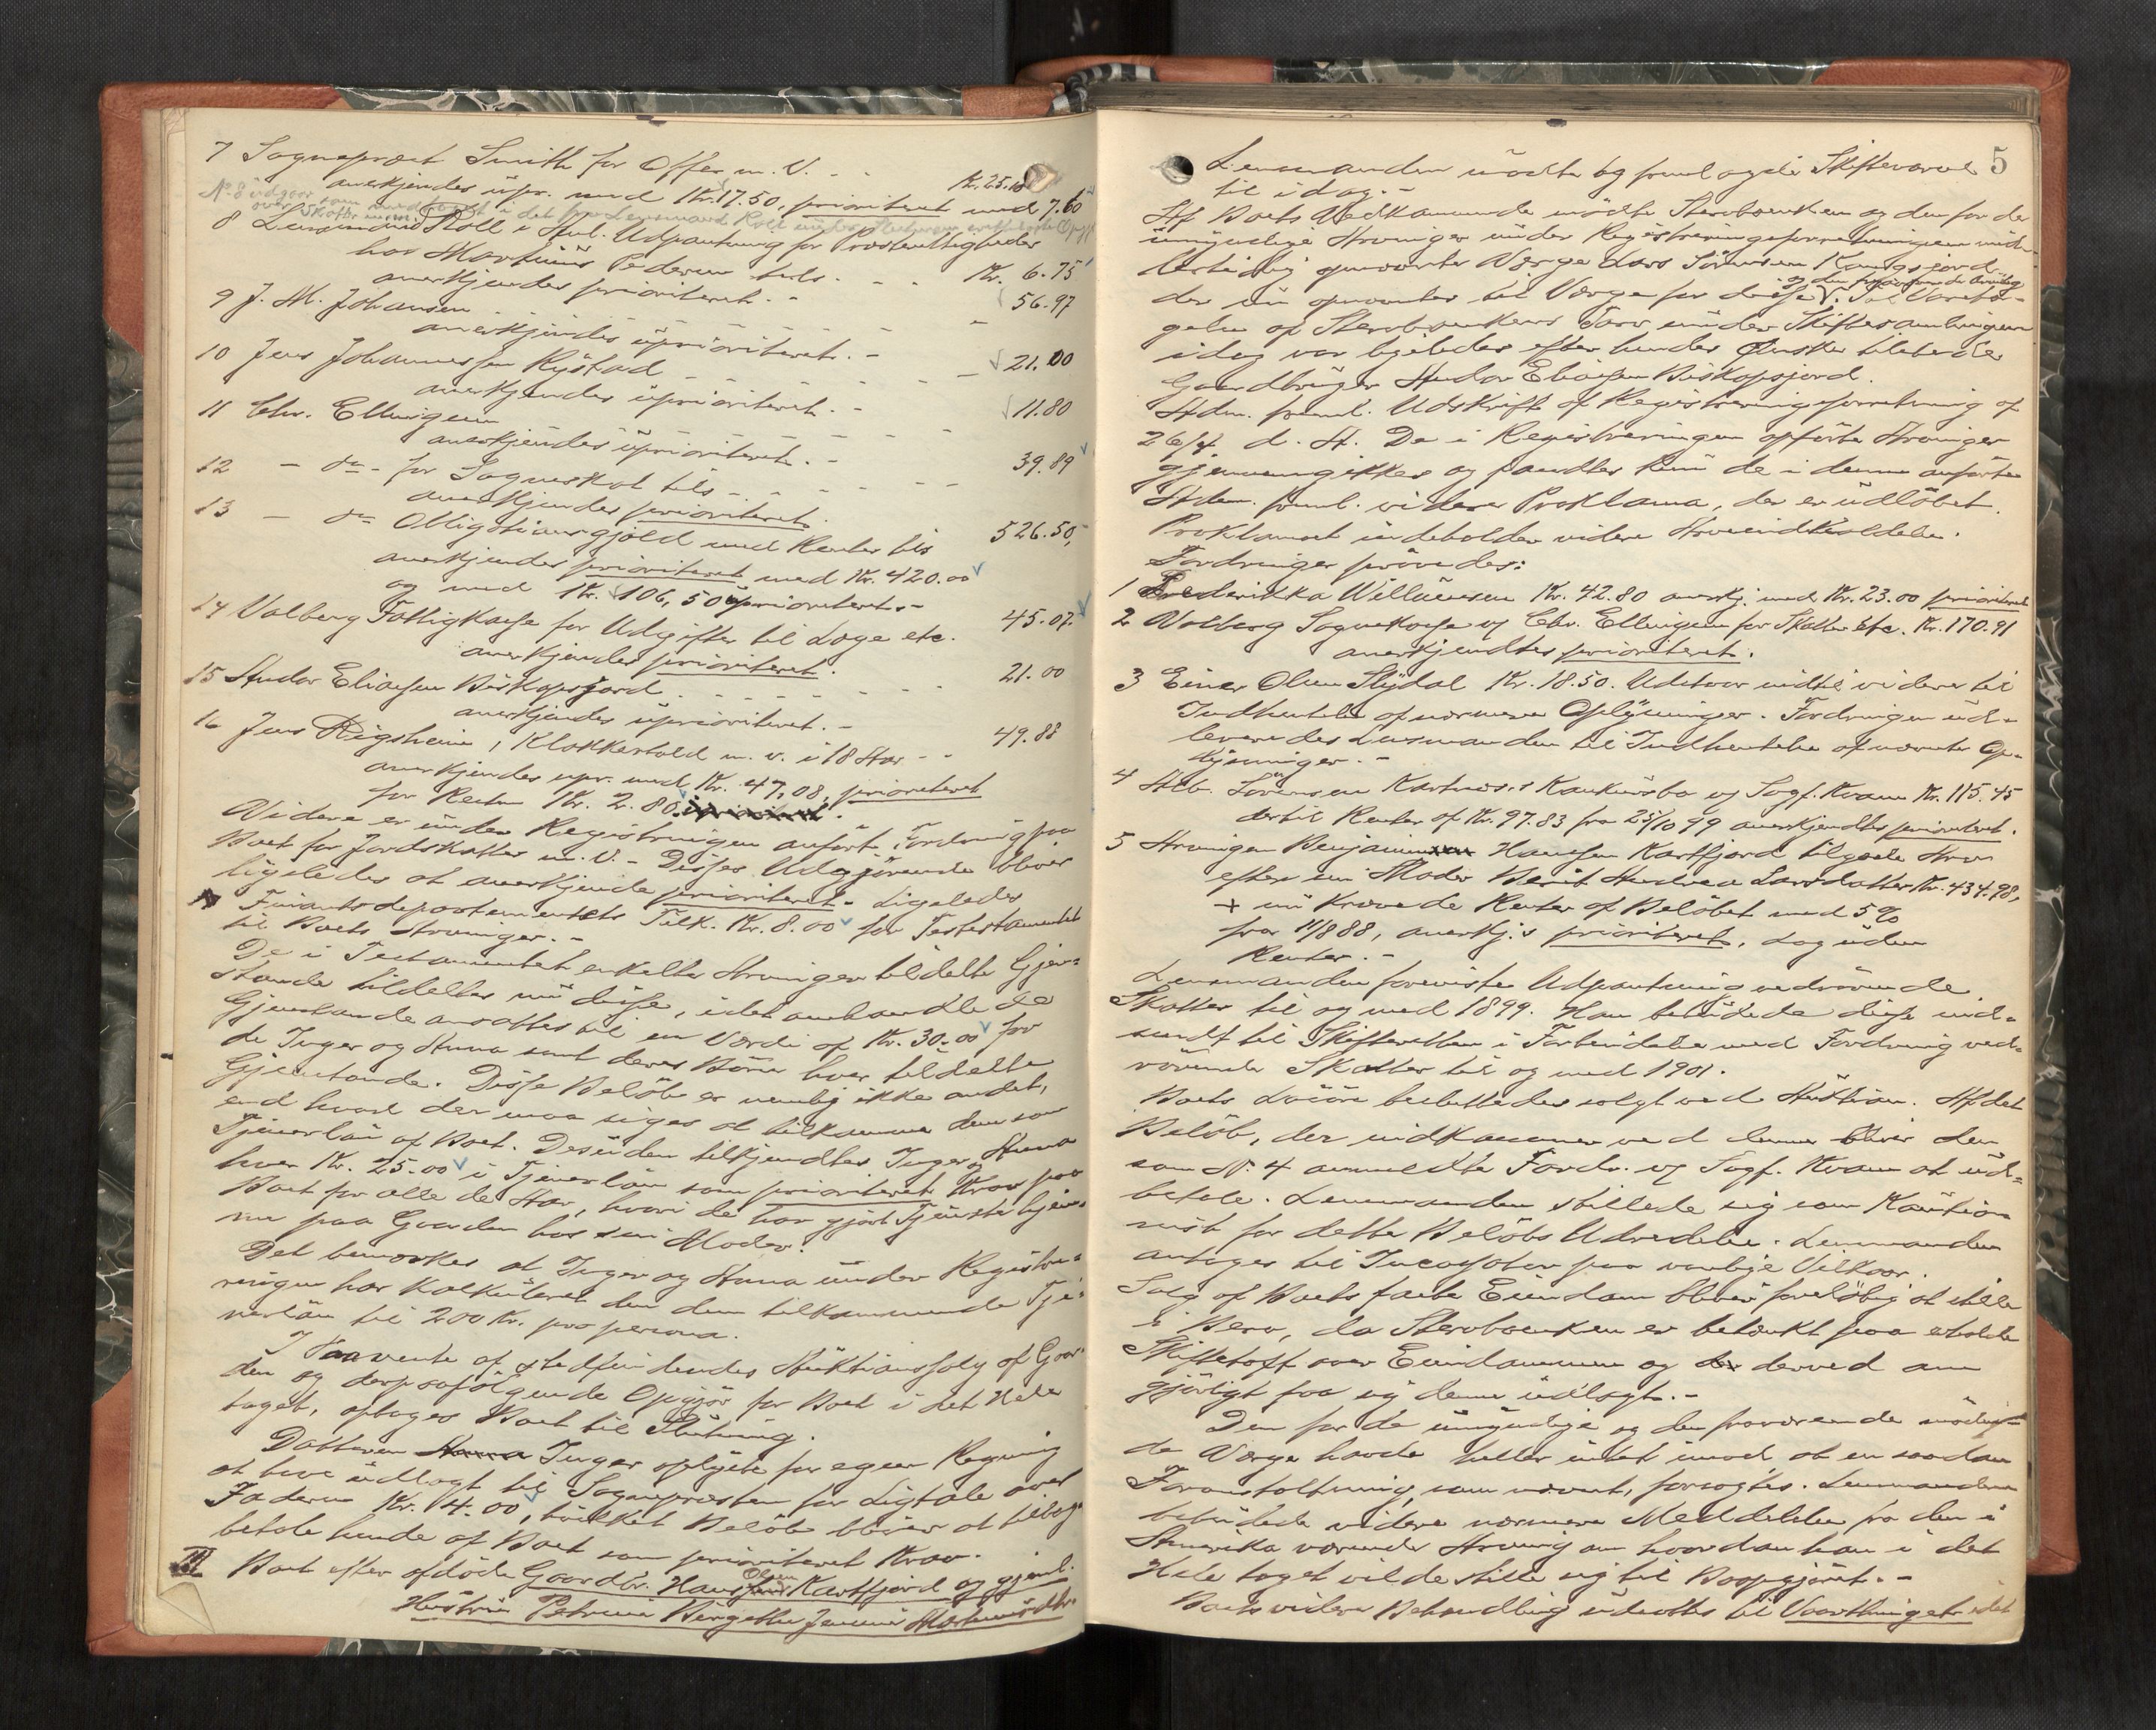 7 Sogneprest Smith for Offer m. V. - - Kr. 25.10
anerkjendes upr. med Kr. 17.50, prioriteret med 7.60
8 Lensmand Koll i Anl. Udpantning for Præsterettigheder
hos Martinus Pedersen tils. - - - Kr. 6.75
anerkjendes prioriteret. -
9 J. M. Johansen - - - - - 56.97
anerkjendes uprioriteret. -
10 Jens Johannessen Rystad - - - - 21.00
anerkjendes uprioriteret. -
11 Chr. Ellingsen - - - - - 11.80
anerkjendes uprioriteret. -
12 - do - for Sogneskat tils - - - - - 39.89
anerkjendes prioriteret.
13 - do Obligationsgjæld med Renter tils 526.50,
anerkjendes prioriteret med Kr. 420.00
og med Kr. 106,50 uprioriteret. -
14 Valberg Fattigkasse for Udgifter til Læge etc. 45.07.
anerkjendes prioriteret.
15 Andor Eliassen Biskopsjord - - - - - 21.00
anerkjendes uprioriteret. -
16 Jens Rigsheim, Klokkertold m. v. i 18 Aar - - 49.88
anerkjendes upr. med Kr. 47,08, prioriteret
for Resten Kr. 2.80.
Videre er under Registringen anført Fordring paa
Boet for Jordskatter m. V. - Disses Udgjørende bliver
ligeledes at anerkjende prioriteret. Ligeledes
Finantsdepartementets Tilk. Kr. 8.00 for Testestamentet
til Boets Arvinger. -
De i Testamentet enkelte Arvinger tildelte Gjen-
stande tildeltes nu disse, idet omhandlede
Gjenstande ansattes til en Værdi af Kr. 30.00 for
de Inger og Anna samt deres Børn hver tildelte
Gjenstande. Disse Beløb er nemlig ikke andet,
end hvad der maa siges at tilkomme dem som
Tjenerløn af Boet. Desuden tilkjendtes Inger og Anna
hver Kr. 25.00 i Tjenerløn som prioriteret Krav paa
Boet for alle de Aar, hvori de har gjort Tjeneste hjem-
me paa Gaarden hos sin Moder.
Det bemærkes at Inger og Anna under Registre-
ringen har kalkuleret den dem tilkommende Tje-
nerløn til 200 Kr. pro persona.
I Paavente af stedfindendes Auktionssalg af Gaar-
den og derpaafølgende Opgjør for Boet i det Hele
taget, optages Boet til Slutning.
Datteren Inger oplyste for egen Regning
at have udlagt til Sognepresten for Ligtale over
Faderen Kr. 4.00, hvilket Beløb bliver at tilbage-
betale hende af Boet som prioriteret Krav.
III Boet efter afdøde Gaardbr. Hans Olsen Kartfjord og gjenl.
Hustru Petrine Birgithe Jennie Martinusdtr.
5
Lensmanden mødte og fremlagde Skiftevarsel
til idag. -
Af Boets Vedkommende mødte Stervboenken og den for de
umyndige Arvinger under Registreringsforretningen midler-
tidig opnævnte Værge Lars Sörensen Kongsjord,
der nu opnævntes til Værge for disse og den fraværende Arving. Til Vareta-
gelse af Stervboenkens Tarv under Skiftesamlingen
idag var ligeledes efter hendes Ønske tilstede
Gaardbruger Andor Eliassen Biskopsjord.
Adm. freml. Udskrift af Registreringsforretning af
26/4 d. A. De i Registreringen opførte Arvinger
gjennemgikkes og fandtes kun de i denne anførte
Adm. freml. videre Proklama, der er udløbet.
Proklamaet indeholder videre Arveindkaldelse.
Fordringer prøvedes:
1 Frederikka Williumsen Kr. 42.80 anerkj. med Kr. 23.00 prioriteret
2 Valberg Sognekasse v/ Chr. Ellingsen for Skatter etc. Kr. 170.91
anerkjendtes prioriteret.
3 Einer Olsen Slydal Kr. 18.50. Udstaar indtil videre til
Indhentelse af nærmere Oplysninger. Fordringen ud-
leveredes Lensmanden til Indhentelse af nævnte Op-
lysninger. -
4 Alb. Sörensen Kartnæs's Konkursbo v/ Sagf. Kvam Kr. 115.45
dertil Renter af Kr. 97.83 fra 25/10 99 anerkjendtes prioriteret.
5 Arvingen Benjamin Hanssen Kartfjord tilgode Arv
efter sin Moder Berit Andrea Larsdatter Kr. 434.98,
+ nu krævede Renter af Beløbet med 5 %
fra 11/8 88, anerkj.s prioriteret, dog uden
Renter. -
Lensmanden foreviste Udpantning vedrørende
Skatter til og med 1899. Han bebudede disse ind-
sendt til Skifteretten i Forbindelse med Fordring ved-
rørende Skatter til og med 1901.
Boets Løsøre besluttedes solgt ved Auktion. Af det
Beløb, der indkommer ved denne bliver den
som No. 4 anmeldte Fordr. v/ Sagf. Kvam at ud-
betale. Lensmanden stillede sig som Kaution-
nist for dette Beløbs Udredelse. Lensmanden
antages til Incassator paa vanlige Vilkaar.
Salg af Boets faste Eiendom bliver foreløbig at stille
i Bero, da Stervboenken er betænkt paa at holde
Skiftetaxt over Eiendommen og derved om
gjørligt faa sig denne udlagt. -
Den for de umyndige og den fraværende mødende
Værge havde heller intet imod at en saadan
Foranstaltning, som nævnt, forsøgtes. Lensmanden
bebudede videre nærmere Meddelelse fra den i
Amerika værende Arving om hvordan han i det
Hele taget vilde stille sig til Boopgjøret. -
Boets videre Behandling udsattes til Vaartinget idet